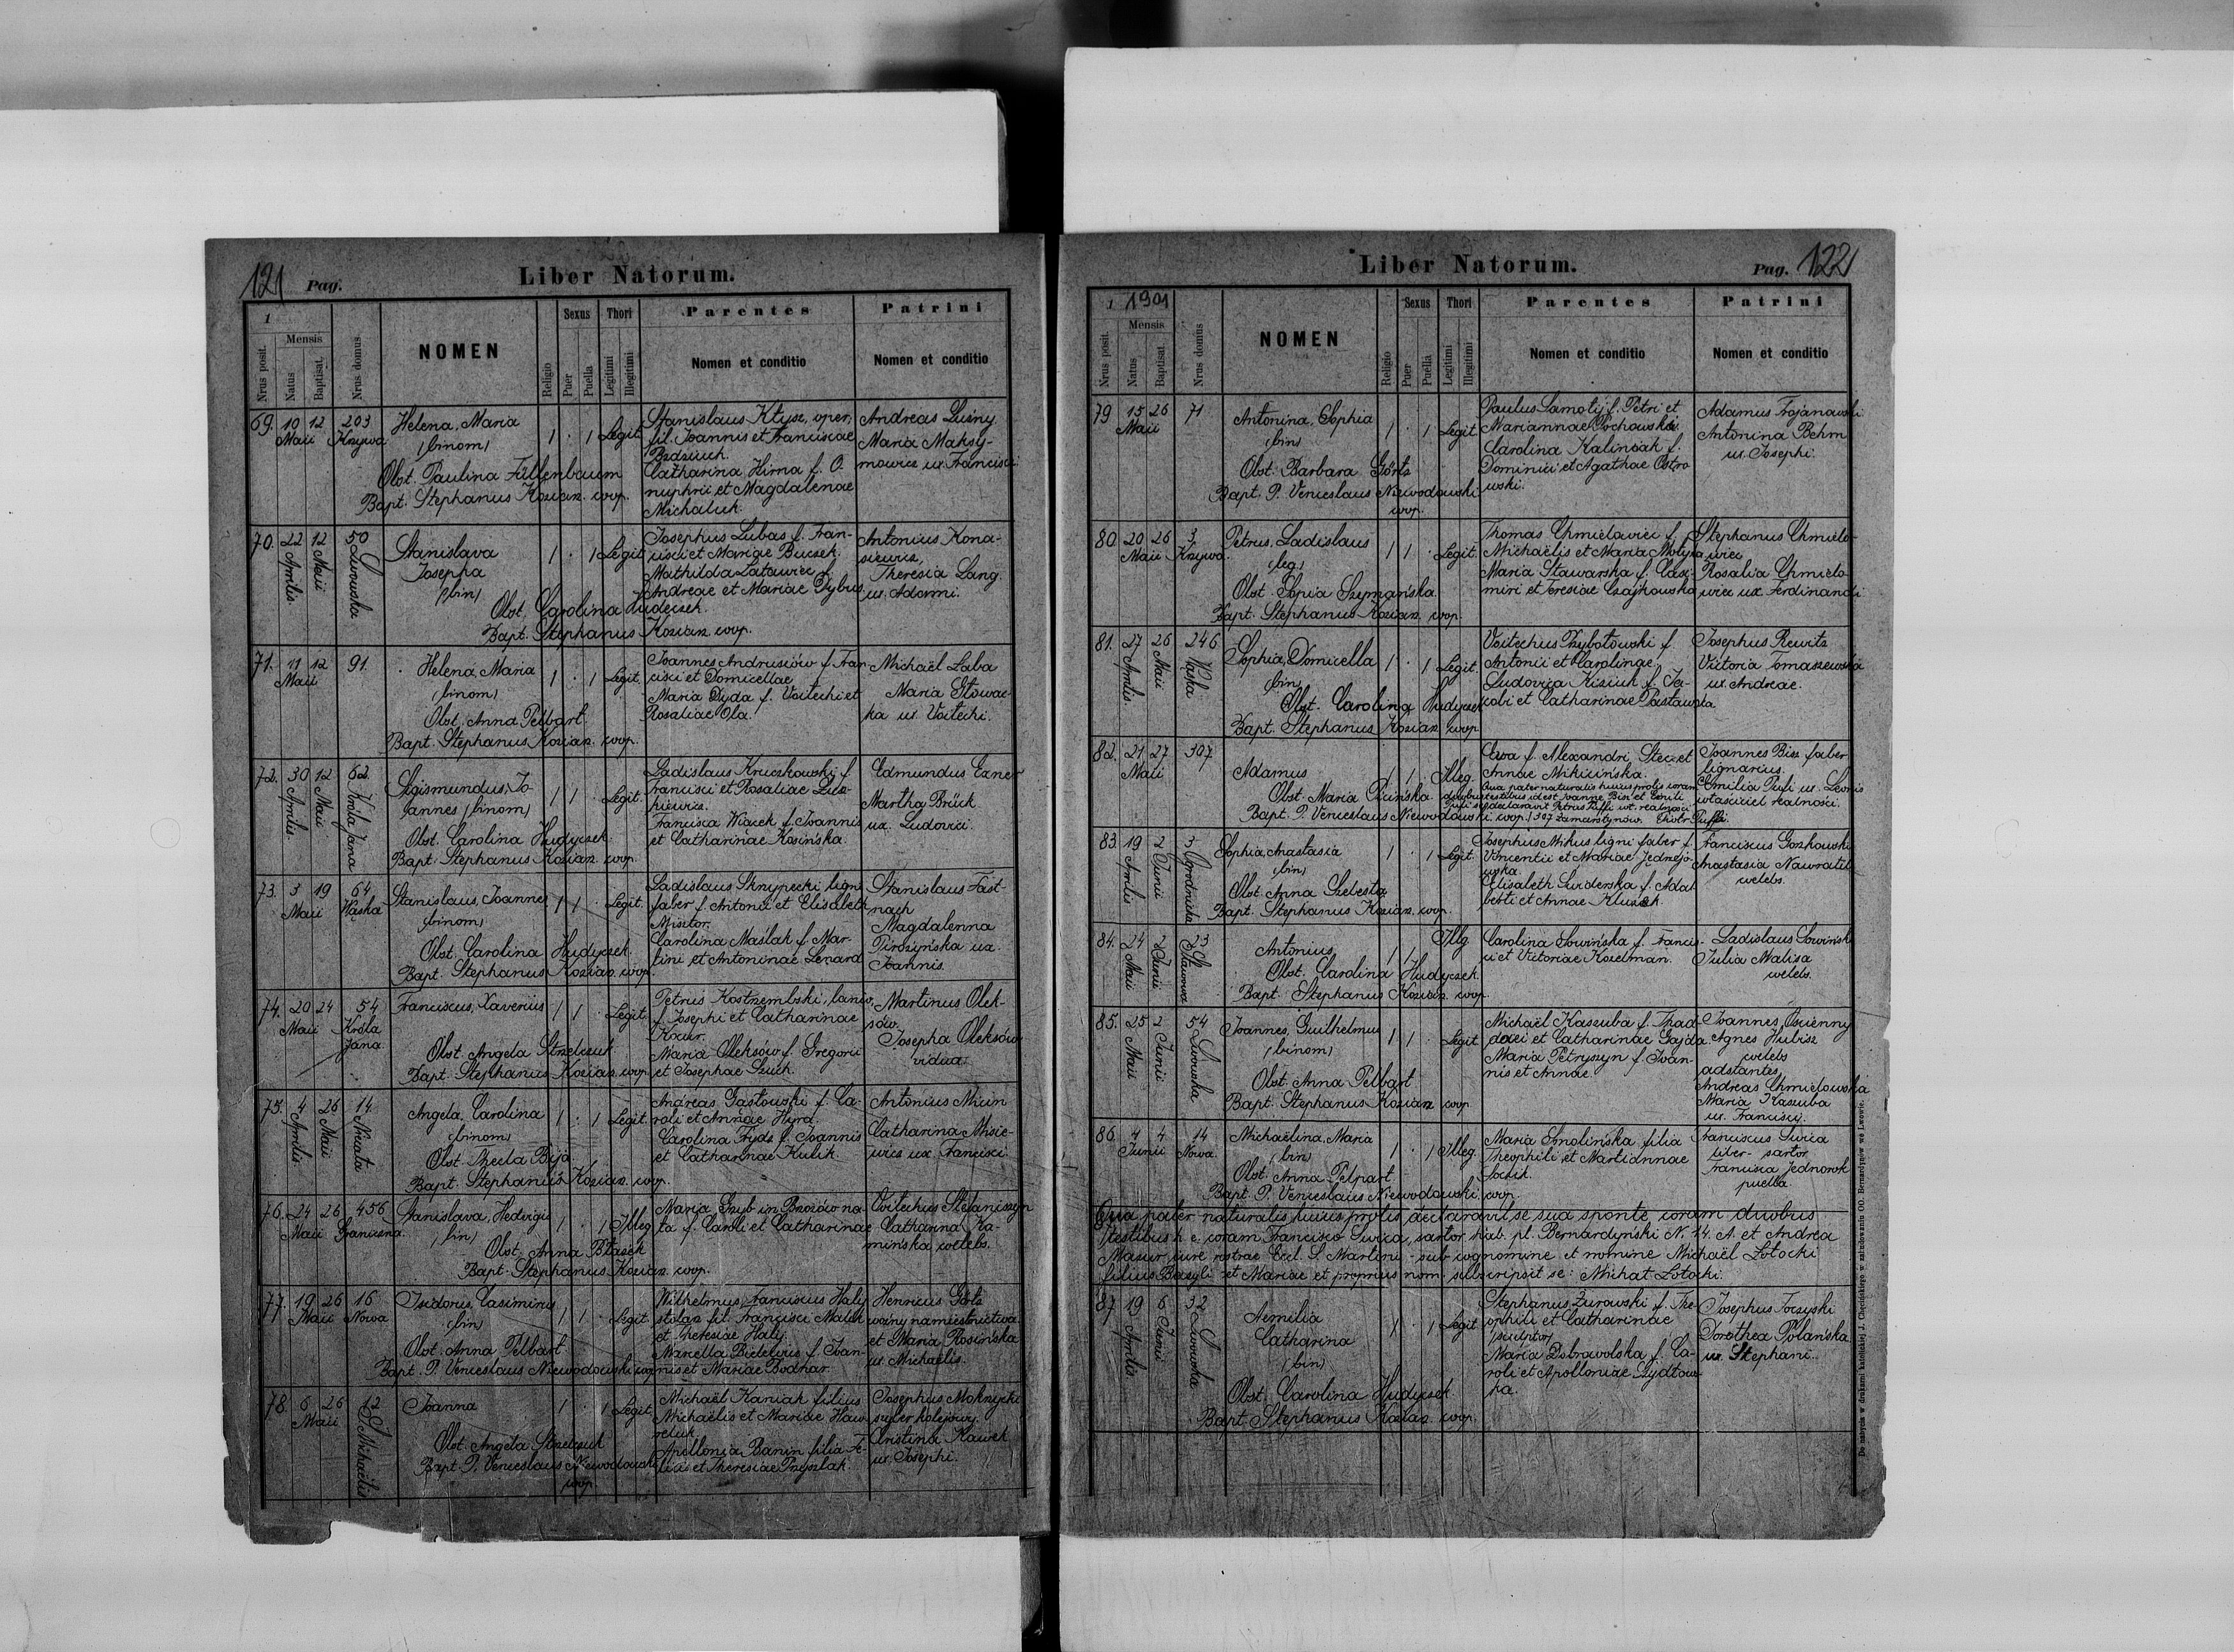 121 Pag.
Liber Natorum.
1
Nrus posit.
Mensis
Natus
Baptisat.
Nrus domus
NOMEN
Religio
Sexus
Puer
Puella
Thori
Legitimi
Illegitimi
Parentes
Nomen et conditio
Patrini
Nomen et conditio
69. 10 12 Maii 203 Krzywa
Helena, Maria
(binom)
Obst. Paulina Füllenbaum
Bapt. Stephanus Kozian. coop.
1 . 1 Legit
Stanislaus Kłysz, oper.
fil. Joannis et Franciscae
Bzdziuch.
Catharina Hirna f. O-
nuphrii et Magdalenae
Michaluk.
Andreas Luśny
Maria Maksy-
mowicz ux. Francisci
70. 22 Aprilis 12 Maii 50 Lwowska
Stanislava
Josepha
(bin)
Obst. Carolina Hudeczek.
Bapt. Stephanus Kozian. coop.
1 . 1 Legit
Josephus Lubas f. Fran-
cisci et Mariae Buczek.
Mathilda Latawiec f.
Andreae et Mariae Dybus
Antonius Kona-
siewicz,
Theresia Lang
ux. Adami.
71. 11 12 Maii 91.
Helena, Maria
(binom)
Obst. Anna Pelbart
Bapt. Stephanus Kozian. coop.
1 . 1 Legit
Joannes Andrusiów f. Fran-
cisci et Domicellae
Maria Dyda f. Voitechi et
Rosaliae Ola.
Michaël Laba
Maria Słowac-
ka ux. Voitechi.
72. 30 Aprilis 12 Maii 62. Króla Jana
Sigismundus, Jo-
annes (binom)
Obst. Carolina Hudyczek
Bapt. Stephanus Kozian. coop.
1 1 . Legit
Ladislaus Kruczkowski f.
Francisci et Rosaliae
Francisca Wiącek f. Joannis
et Catharinae Kosińska.
Edmundus Exner
Martha Brück
ux. Ludovici.
73. 3 19 Maii 64 Wąska
Stanislaus, Joannes
(binom)
Obst. Carolina Hudyczek.
Bapt. Stephanus Kozian. coop.
1 1 . Legit.
Ladislaus Skrzypecki ligni
faber f. Antonii et Elisabeth
Misztor.
Carolina Maślak f. Mar-
tini et Antoninae Lenard
Stanislaus Fast-
nach
Magdalenna
ux.
Joannis.
74. 20 24 Maii 54 Króla Jana
Franciscus, Xaverius
Obst. Angela Strzelczuk.
Bapt. Stephanus Kozian. coop.
1 1 . Legit
Petrus Kostrzembski, lanio,
f. Josephi et Catharinae
Kocur.
Maria Oleksów f. Gregorii
et Josephae Szuch.
Martinus Olek-
sów.
Josepha Oleksów
vidua.
75. 4 Aprilis 26 Maii 14
Angela, Carolina
(binom)
Obst. Thecla Bija.
Bapt. Stephanus Kozian. coop.
1 . 1 Legit.
Andreas Gastowski f. Ca-
roli et Annae Hyrd.
Carolina Frydz f. Joannis
et Catharinae Kulik.
Antonius Micin
Catharina Misie-
wicz ux. Francisci
76. 24 26 Maii 456 Graniczna.
Stanislava, Hedvigis
(bin)
Obst. Anna Ptaszek
Bapt. Stephanus Kozian. coop.
1 . 1 Illeg.
Maria Grzyb in Brozów na-
ta f. Caroli et Catharinae
Voitechus Stefaniszyn
Catharina Ka-
mińska coelebs.
77. 19 26 Maii 16 Nowa
Isidorus, Casimirus
(bin)
Obst. Anna Pelbart
Bapt. P. Venceslaus Niewodowski coop.
1 1 . Legit
Wilhelmus, Franciscus Haly
stolarz fil. Francisci
et Theresiae Haly.
Marcella Bielewicz f. Joan-
nis et Mariae Bodnar.
Henricus Görtz
woźny namiestnictwa
et Maria Rosińska
ux. Michaëlis.
78. 6 26 Maii 12 S. Michaëlis
Joanna
Obst. Angela Strzelczuk
Bapt. P. Venceslaus Niewodowski
coop
1 . 1 Legit
Michaël Kaniak filius
Michaëlis et Mariae Haw-
reluk
Apollonia Banin filia Fe-
licis et Theresiae Przyszlak.
Josephus Mokrzycki
szyler kolejowy.
Cristina Kawek
ux. Josephi.
Liber Natorum.
Pag. 122
1 1901
Nrus posit.
Mensis
Natus
Baptisat.
Nrus domus
NOMEN
Religio
Sexus
Puer
Puella
Thori
Legitimi
Illegitimi
Parentes
Nomen et conditio
Patrini
Nomen et conditio
79 15 26 Maii 71
Antonina, Sophia
(bin)
Obst. Barbara Görtz
Bapt. P. Venceslaus Niewodowski
coop.
1 . 1 Legit
Paulus Samotyj f. Petri et
Mariannae Pochowska.
Carolina Kalinciak f.
Dominici et Agathae Ostro-
wski.
Adamus Trojanowski
Antonina Behm
ux. Josephi.
80. 20 26 Maii 3 Krzywa.
Petrus, Ladislaus
Obst. Sopia Szymańska.
Bapt. Stephanus Kozian. coop.
1 1 . Legit.
Thomas Chmielowiec f.
Michaëlis et Maria Motyka
Maria Stawarska f. Casi-
miri et Teresiae Czajkowska
Stephanus Chmielo-
wiec
Rosalia Chmielo-
wiec ux. Ferdinandi
81. 27 Aprilis 26 Maii 246 Wąska
Sophia, Domicella
(bin)
Obst. Carolina Hudyczek
Bapt. Stephanus Kozian. coop.
1 . 1 Legit
Voitechus Przybołowski f.
Antonii et Carolinae
Ludovica Kiziuk f. Ja-
cobi et Catharinae Pastawska.
Josephus Rewitz
Victoria Tomaszewska
ux. Andreae.
82. 21 27 Maii 307
Adamus
Obst. Maria Picińska
Bapt. P. Venceslaus Niewodowski coop.
1 1 . Illeg.
Ewa f. Alexandri Stec et
Annae Mikicińska.
Qua pater naturalis huius prolis coram
duobus testibus id est Joanne Bisz et Aemili
Pufi se declaravit Petrus Puffi wł. realności
307 Zamarstynów. Piotr Puffi.
Joannes Bisz faber
lignarius.
Emilia Pufi ux. Leonis
właściciel realności.
83. 19 Aprilis 2 Junii 3 Ogrodnicka
Sophia, Anastasia
(bin)
Obst. Anna Szelesta
Bapt. Stephanus Kozian. coop.
1 . 1 Legit.
Josephus Mikus ligni faber f.
Vincentii et Mariae Jędrzejo-
wska.
Elisabeth Swiderska f. Adal-
berti et Annae Kluzek.
Franciscus Goszkowski
Anastasia Nawratil
coelebs.
84. 24 Maii 2 Junii 23 Stawowa
Antonius
Obst. Carolina Hudyczek.
Bapt. Stephanus Kozian. coop.
1 1 Illg
Carolina Sowińska f. Francis-
ci et Victoriae Koselman.
Ladislaus Sowiński
Julia Malisa
coelebs.
85. 25 Maii 2 Junii 54 Lwowska
Joannes, Guilhelmus
(binom)
Obst. Anna Pelbart
Bapt. Stephanus Kozian coop.
1 1 . Legit
Michaël Kaszuba f. Thad-
daei et Catharinae Gajda
Maria Petryszyn f. Joan-
nis et Annae.
Joannes Osienny
Agnes Hubisz
coelebs
adstantes,
Andreas Chmielowska
Maria Kaszuba
ux. Francisci.
86. 4 4 Junii 14 Nowa
Michaëlina, Maria
(bin)
Obst. Anna Pelpart
Bapt. P. Venceslaus Niewodowski coop.
1 . 1 Illeg.
Maria Smolińska filia
Theophili et Martiannae
Franciscus Swica
liber-sartor
Francisca Jednorok
puella.
Qua pater naturalis huius prolis declaravit se sua sponte coram duobus
testibus h. e. coram Francisco Swica, sartor hab. pl. Bernardyński N. 14. A. et Andrea
Mazur iure nostrae Eccl. S. Martini - sub cognomine et nomine Michaël Łotocki
filius Bazyli et Mariae et proprius nom. subscripsit se: Michał Łotocki.
87. 19 Aprilis 6 Junii 32 Lwowska
Aemilia
Catharina
(bin)
Obst. Carolina Hudyczek
Bapt. Stephanus Kozian. coop.
1 . 1 Legit
Stephanus Żurawski f. The-
ophili et Catharinae
(sculptor)
Maria Dobrowolska f. Ca-
roli et Apolloniae Szydłow-
ka.
Josephus Toczyski
Dorothea Polańska
ux. Stephani.
Do nabycia w drukarni katolickiej J. Chęcińskiego w zabudowaniu OO. Bernardynów we Lwowie.